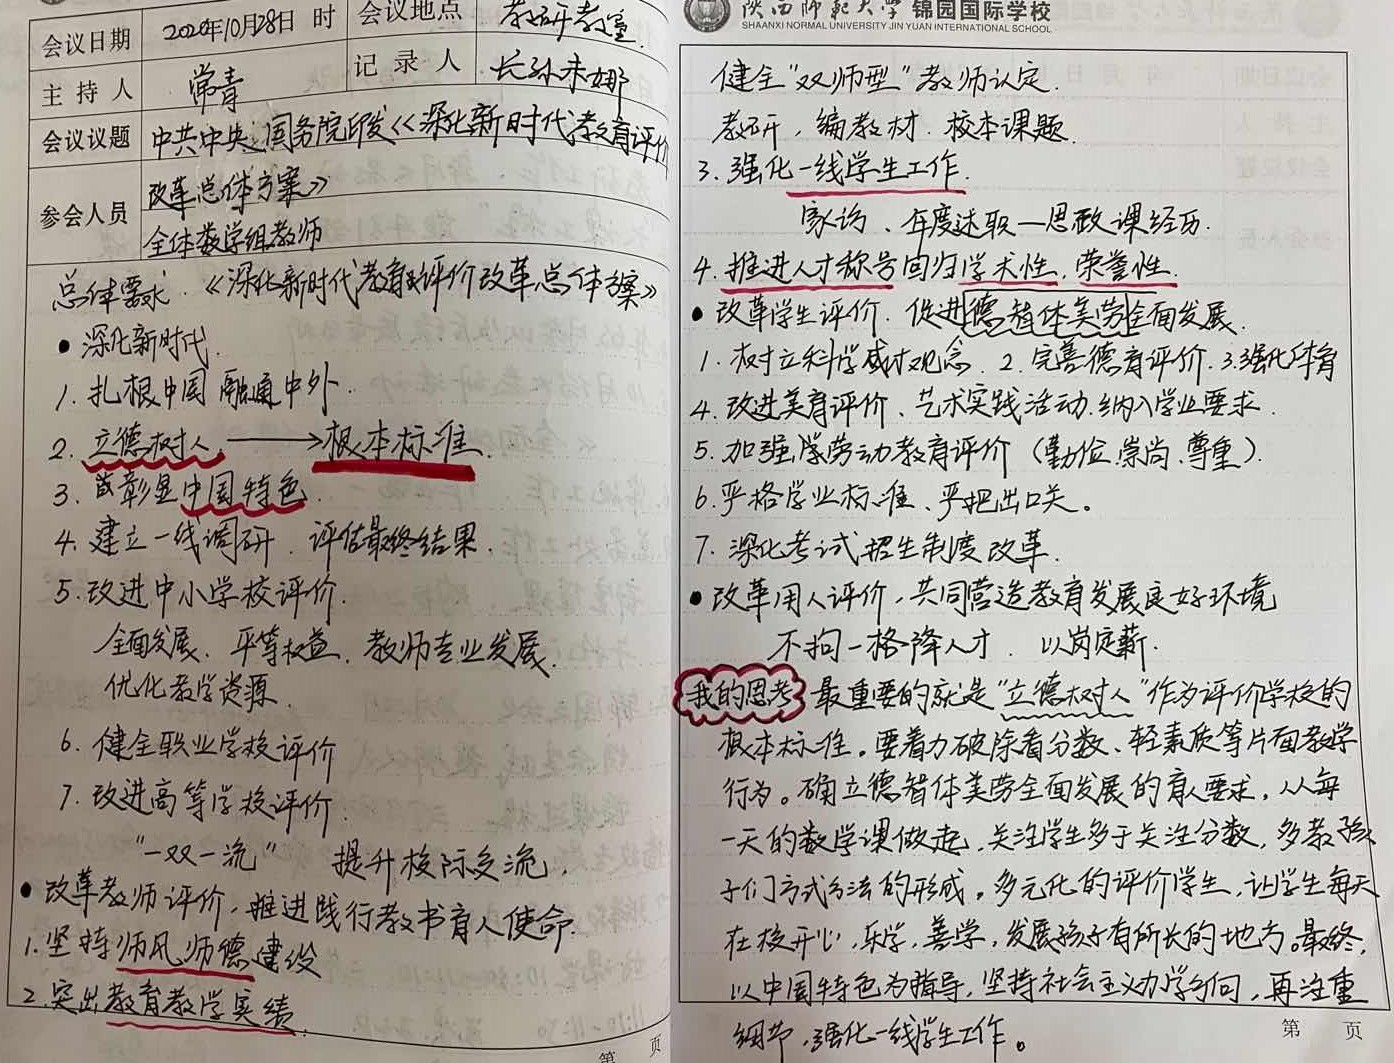 会议日期 2020年10月28日 时 会议地点 教研教室.
主持人 常青 记录人 长孙未娜
会议议题 中共中央、国务院印发《深化新时代教育评价
改革总体方案》
参会人员 全体数学组教师
总体要求.《深化新时代教育评价改革总体方案》
• 深化新时代.
1. 扎根中国 融通中外.
2. 立德树人 → 根本标准.
3. 彰显中国特色.
4. 建立一线调研. 评估最终结果.
5. 改进中小学校评价.
全面发展. 平等权益. 教师专业发展.
优化教学资源.
6. 健全职业学校评价
7. 改进高等学校评价.
"一双一流" 提升校际交流.
• 改革教师评价,推进践行教书育人使命.
1. 坚持师风师德建设
2. 突出教育教学实绩.
第 页
陕西师范大学 锦园国际学校
SHAANXI NORMAL UNIVERSITY JIN YUAN INTERNATIONAL SCHOOL
健全"双师型"教师认定.
教研,编教材.校本课题.
3. 强化一线学生工作.
家访、年度述职—思政课经历.
4. 推进人才称号回归学术性,荣誉性.
• 改革学生评价. 促进德智体美劳全面发展.
1. 树立科学成才观念. 2. 完善德育评价. 3. 强化体育
4. 改进美育评价、艺术实践活动.纳入学业要求.
5. 加强学劳动教育评价(勤俭.崇尚.尊重).
6. 严格学业标准、严把出口关。
7. 深化考试招生制度改革.
• 改革用人评价,共同营造教育发展良好环境
不拘一格降人才. 以岗定薪.
我的思考 最重要的就是"立德树人"作为评价学校的
根本标准。要着力破除看分数、轻素质等片面教学
行为。确立德智体美劳全面发展的育人要求,从每
一天的数学课做起,关注学生多于关注分数,多教孩
子们方式方法的形成。多元化的评价学生,让学生每天
在校开心,乐学,善学,发展孩子有所长的地方。最终,
以中国特色为指导,坚持社会主义办学方向,再注重
细节,强化一线学生工作。
第 页